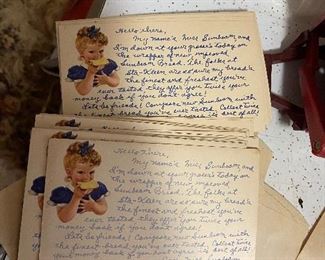 Hello there,
My name's Miss Sunbeam and
I'm down at your grocer's today on
the wrapper of new, improved
Sunbeam Bread. The folks at
Sta-Kleen are so sure my bread is
the finest and freshest you've
ever tasted they offer you twice your
money back if you don't agree!
Let's be friends! Compare new Sunbeam with
the finest bread you've ever tasted. Collect twice
it's best of all!
Hello there,
My name's Miss Sunbeam and
I'm down at your grocer's today on
the wrapper of new, improved
Sunbeam Bread. The folks at
Sta-Kleen are so sure my bread is
the finest and freshest you've
ever tasted they offer you twice your
money back if you don't agree!
Let's be friends! Compare new Sunbeam with
the finest bread you've ever tasted. Collect twice